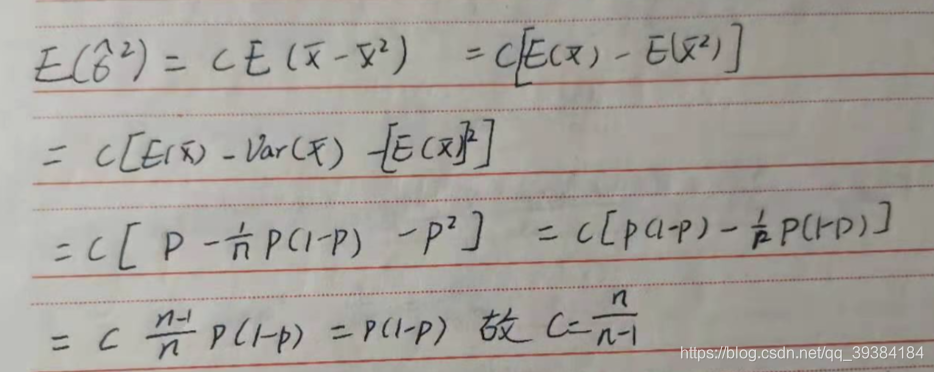 E(σ̂²) = C E (x̄ - x̄²) = C[E(x̄) - E(x̄²)]
= C[E(x̄) - Var(x̄) - [E(x̄)]²]
= C[ P - 1/n P(1-P) - P² ] = C[P(1-P) - 1/n P(1-P)]
= C n-1/n P(1-P) = P(1-P) 故 C = n/n-1
https://blog.csdn.net/qq_39384184